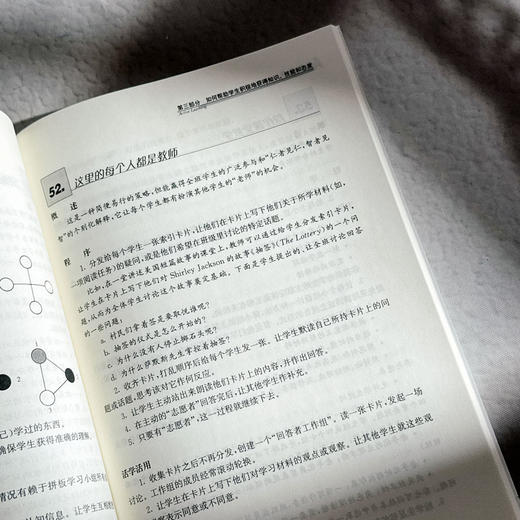 第三部分 如何帮助学生积极地获得知识、技能和态度
52. 这里的每个人都是教师
概 述
这是一种简便易行的策略,但能赢得全班学生的广泛参与和“仁者见仁,智者见
智”的个别化解释,它让每个学生都有扮演其他学生的“老师”的机会。
程 序
1. 分发给每个学生一张索引卡片,让他们在卡片上写下他们关于所学材料(如,
一项阅读任务)的疑问,或是他们希望在班级里讨论的特定话题。
比如,在一堂讲述美国短篇故事的课堂上,教师可以通过给学生分发索引卡片,
让学生在卡片上写下他们对 Shirley Jackson 的故事《抽签》(The Lottery)的一个问
题,从而为全体学生讨论这个故事奠定基础。下面是学生提出的、让全班讨论回答
的一些问题:
a. 村民们拿着签是要取悦谁呢?
b. 抽签的仪式是怎么开始的?
c. 为什么没有人停止掷石头呢?
d. 为什么萨默斯先生掌控着抽签?
2. 收齐卡片,打乱顺序后给每个学生发一张。让学生默读自己所持卡片上的问
题或话题,思考该对它作何反应。
3. 让学生主动站出来朗读他们卡片上的内容,并作出回答。
4. 在主动的“志愿者”回答完后,让其他学生作补充。
5. 只要有“志愿者”,这一过程就继续下去。
活学活用
1. 收集卡片之后不再分发,创建一个“回答者工作组”。读一张卡片,发起一场
讨论,工作组的成员经常滚动轮换。
2. 让学生在卡片上写下他们对学习材料的观点或观察。让其他学生就这些观
察表示同意或不同意。
2
3
己)学过的东西,
确保学生获得准确的理解,
情况有赖于拼板学习小组所
认知信息。让学生互相